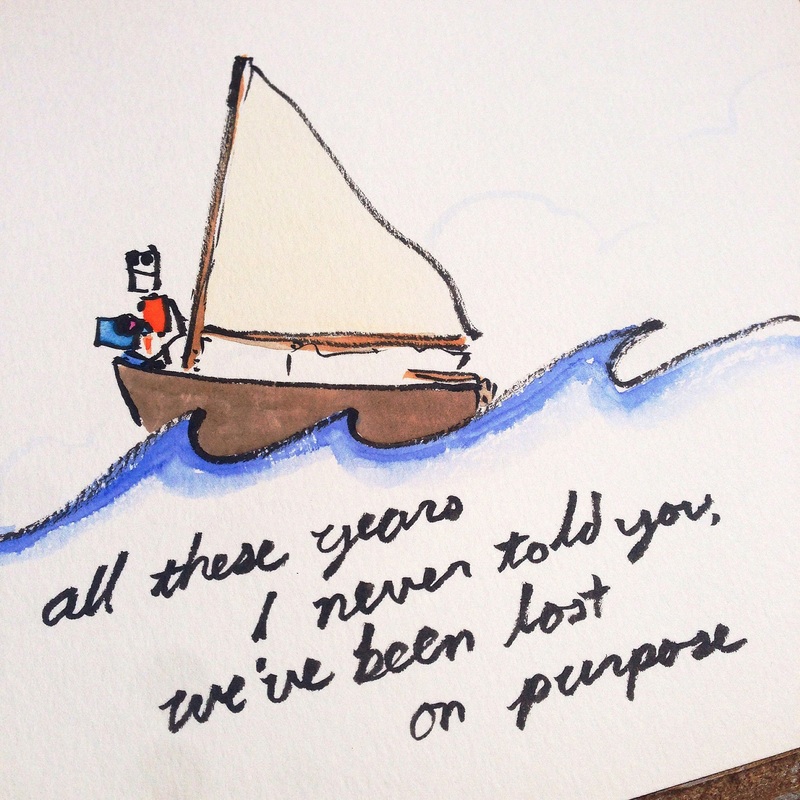 all these years
I never told you,
we've been lost
on purpose